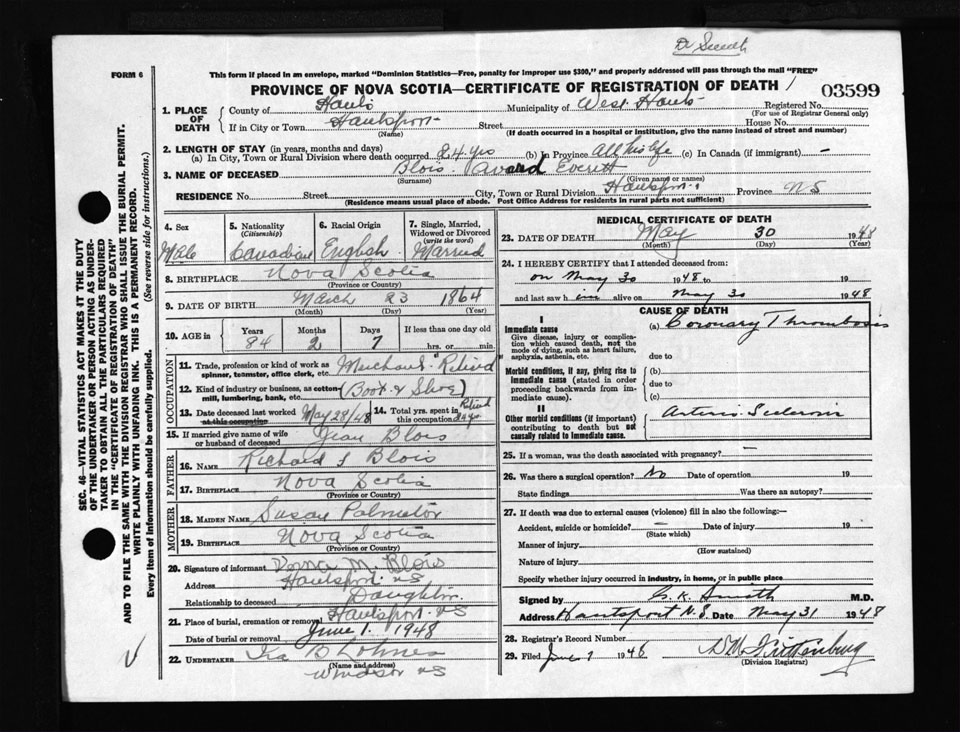 Dr Smith
FORM 6
This form if placed in an envelope, marked "Dominion Statistics—Free, penalty for improper use $300," and properly addressed will pass through the mail "FREE"
PROVINCE OF NOVA SCOTIA—CERTIFICATE OF REGISTRATION OF DEATH
03599
1. PLACE OF DEATH
County of Hants Municipality of West Hants Registered No.
(For use of Registrar General only)
If in City or Town Hantsport Street House No.
(Name) (If death occurred in a hospital or institution, give the name instead of street and number)
2. LENGTH OF STAY (in years, months and days)
(a) In City, Town or Rural Division where death occurred 24 yrs (b) In Province All his life (c) In Canada (if immigrant) —
3. NAME OF DECEASED Blois Avard Everett
(Surname) (Given name or names)
RESIDENCE No. Street City, Town or Rural Division Hantsport Province NS
(Residence means usual place of abode. Post Office Address for residents in rural parts not sufficient)
4. Sex
Male
5. Nationality
(Citizenship)
Canadian
6. Racial Origin
English
7. Single, Married, Widowed or Divorced
(write the word)
Married
8. BIRTHPLACE Nova Scotia
(Province or Country)
9. DATE OF BIRTH March 23 1864
(Month) (Day) (Year)
10. AGE in
Years Months Days If less than one day old
84 2 7 hrs. or min.
OCCUPATION
11. Trade, profession or kind of work as spinner, teamster, office clerk, etc. Merchant "Retired
12. Kind of industry or business, as cotton mill, lumbering, bank, etc. (Boot & Shoe)
13. Date deceased last worked at this occupation May 28/48
14. Total yrs. spent in this occupation Retired
15. If married give name of wife or husband of deceased Jean Blois
FATHER
16. NAME Richard S Blois
17. BIRTHPLACE Nova Scotia
(Province or Country)
MOTHER
18. MAIDEN NAME Susan Palmetor
19. BIRTHPLACE Nova Scotia
(Province or Country)
20. Signature of informant M. Blois
Address Hantsport NS
Relationship to deceased Daughter
21. Place of burial, cremation or removal Hantsport NS
Date of burial or removal June 1. 1948
22. UNDERTAKER Ira B Lohnes
(Name and address)
Windsor NS
MEDICAL CERTIFICATE OF DEATH
23. DATE OF DEATH May 30 1948
(Month) (Day) (Year)
24. I HEREBY CERTIFY that I attended deceased from:
on May 30 1948 to 19
and last saw him alive on May 30 1948
CAUSE OF DEATH
I
Immediate cause
(a) Coronary Thrombosis
Give disease, injury or complication which caused death, not the mode of dying, such as heart failure, asphyxia, asthenia, etc.
due to
Morbid conditions, if any, giving rise to immediate cause (stated in order proceeding backwards from immediate cause).
(b)
due to
(c)
II
Other morbid conditions (if important) contributing to death but not causally related to immediate cause.
Arterio Sclerosis
25. If a woman, was the death associated with pregnancy? —
26. Was there a surgical operation? No Date of operation 19
State findings Was there an autopsy?
27. If death was due to external causes (violence) fill in also the following:—
Accident, suicide or homicide? — Date of injury 19
(State which)
Manner of injury
(How sustained)
Nature of injury
Specify whether injury occurred in industry, in home, or in public place
Signed by C. K. Smith M.D.
Address Hantsport N.S. Date May 31 1948
28. Registrar's Record Number
29. Filed June 1 1948
(Division Registrar)
SEC. 46—VITAL STATISTICS ACT MAKES IT THE DUTY
OF THE UNDERTAKER OR PERSON ACTING AS UNDER-
TAKER TO OBTAIN ALL THE PARTICULARS REQUIRED
IN THE "CERTIFICATE OF REGISTRATION OF DEATH"
AND TO FILE THE SAME WITH THE DIVISION REGISTRAR WHO SHALL ISSUE THE BURIAL PERMIT.
WRITE PLAINLY WITH UNFADING INK. THIS IS A PERMANENT RECORD.
Every item of information should be carefully supplied. (See reverse side for instructions.)